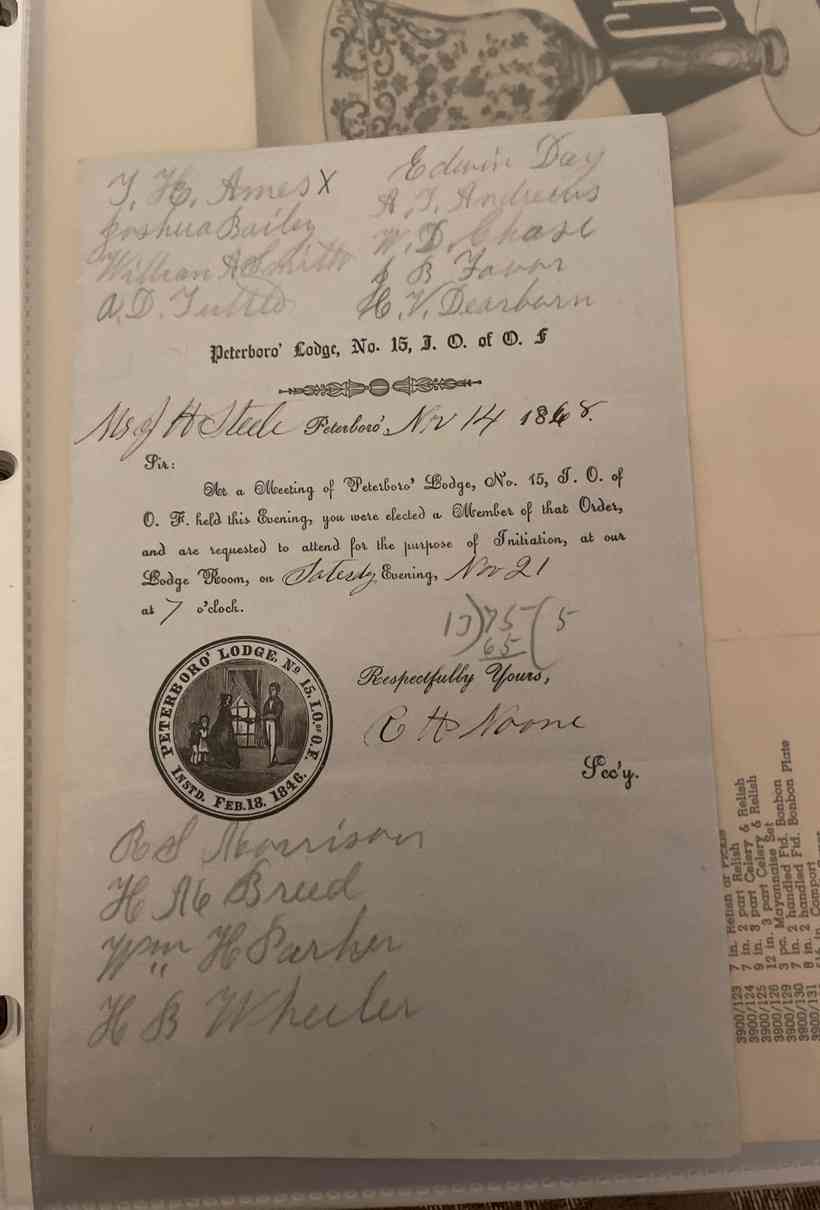 T. H. Ames X
Joshua Bailey
William A Smith
A. D. Tuttle
Edwin Day
A. T. Andrews
W. D. Chase
B Favor
H. V. Dearborn
Peterboro' Lodge, No. 15, I. O. of O. F
J H Steele Peterboro', Nov 14 1868.
Sir:
At a Meeting of Peterboro' Lodge, No. 15, I. O. of
O. F. held this Evening, you were elected a Member of that Order,
and are requested to attend for the purpose of Initiation, at our
Lodge Room, on Evening, Nov 21
at 7 o'clock.
75 ( 5
65
Respectfully Yours,
C H Noone
Sec'y.
PETERBORO' LODGE, No 15, I.O. of O.F.
INSTD. FEB. 18. 1846.
R S Morrison
H M Breed
Wm H Parker
H B Wheeler
3900/123 7 in. Relish or Pickle
3900/124 7 in. 2 part Relish
3900/125 9 in. 3 part Celery & Relish
3900/126 12 in. 3 part Celery & Relish
3900/129 3 pc. Mayonnaise Set
3900/130 7 in. 2 handled Ftd. Bonbon
3900/131 8 in. 2 handled Ftd. Bonbon Plate
Comport